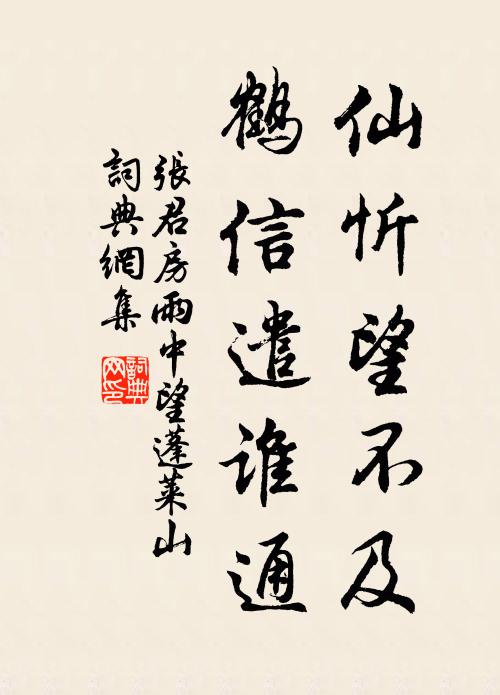 仙忻望不及
鶴信遣誰通
張君房雨中望蓬萊山
詞典網集
詞典网印